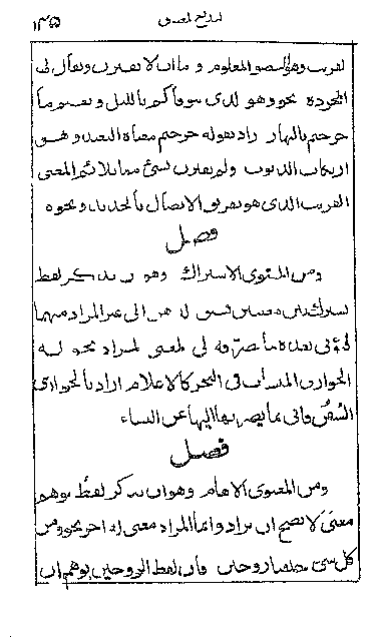 ١٣٥
لقريب وهو العضو المعلوم و ما ان لا يقترن ويقال له
المجردة نحو وهو لذى يتوفاكم بالليل ويعلم ما
جرحتم بالنهار راد بقوله جرحتم معناه البعيد وهو
ارتكاب الذنوب ولم يقترن بشئ مما يلائم المعنى
القريب الذى هو تفريق الاتصال بالحديد ونحوه
فصل
ومن المعنوى الاشتراك وهو ن يذكر لفظ
مشترك بين معنيين يسبق لى الذهن الى غير المراد منهما
فيؤتى بعده بما يصرفه لى لمعنى لمراد نحو له
الجوارى المنشات فى البحر كالاعلام اراد بالجوارى
السُفُن فاتى بما يصرفها اليها عن النساء
فصل
ومن المعنوى الايهام وهو ان يذكر لفظ يوهم
معنًى لا يصح ان يراد وانما المراد معنى له اخر نحو ومن
كل شئ خلقنا زوجين فان لفظ الزوجين يوهم ان